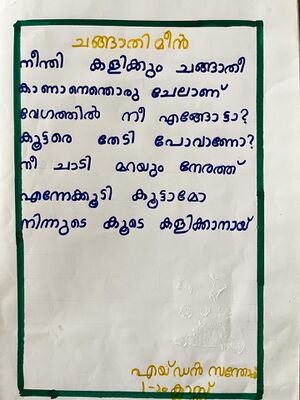 ചങ്ങാതി മീൻ
നീന്തി കളിക്കും ചങ്ങാതീ
കാണാനെന്തൊരു ചേലാണ്
വേഗത്തിൽ നീ എങ്ങോട്ടാ?
കൂട്ടരെ തേടി പോവാണോ?
നീ ചാടി മറയും നേരത്ത്
എന്നേക്കൂടി കൂട്ടാമോ
നിന്നുടെ കൂടെ കളിക്കാനായ്
എയ്ഡൻ
1-ാം ക്ലാസ്സ്